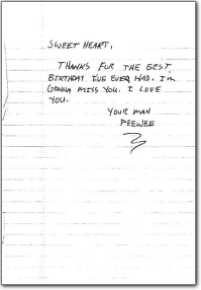 SWEET HEART,
THANKS FOR THE BEST
BIRTHDAY I'VE EVER HAD. I'm
GONNA MISS YOU. I LOVE
YOU.
YOUR MAN
PEEWEE